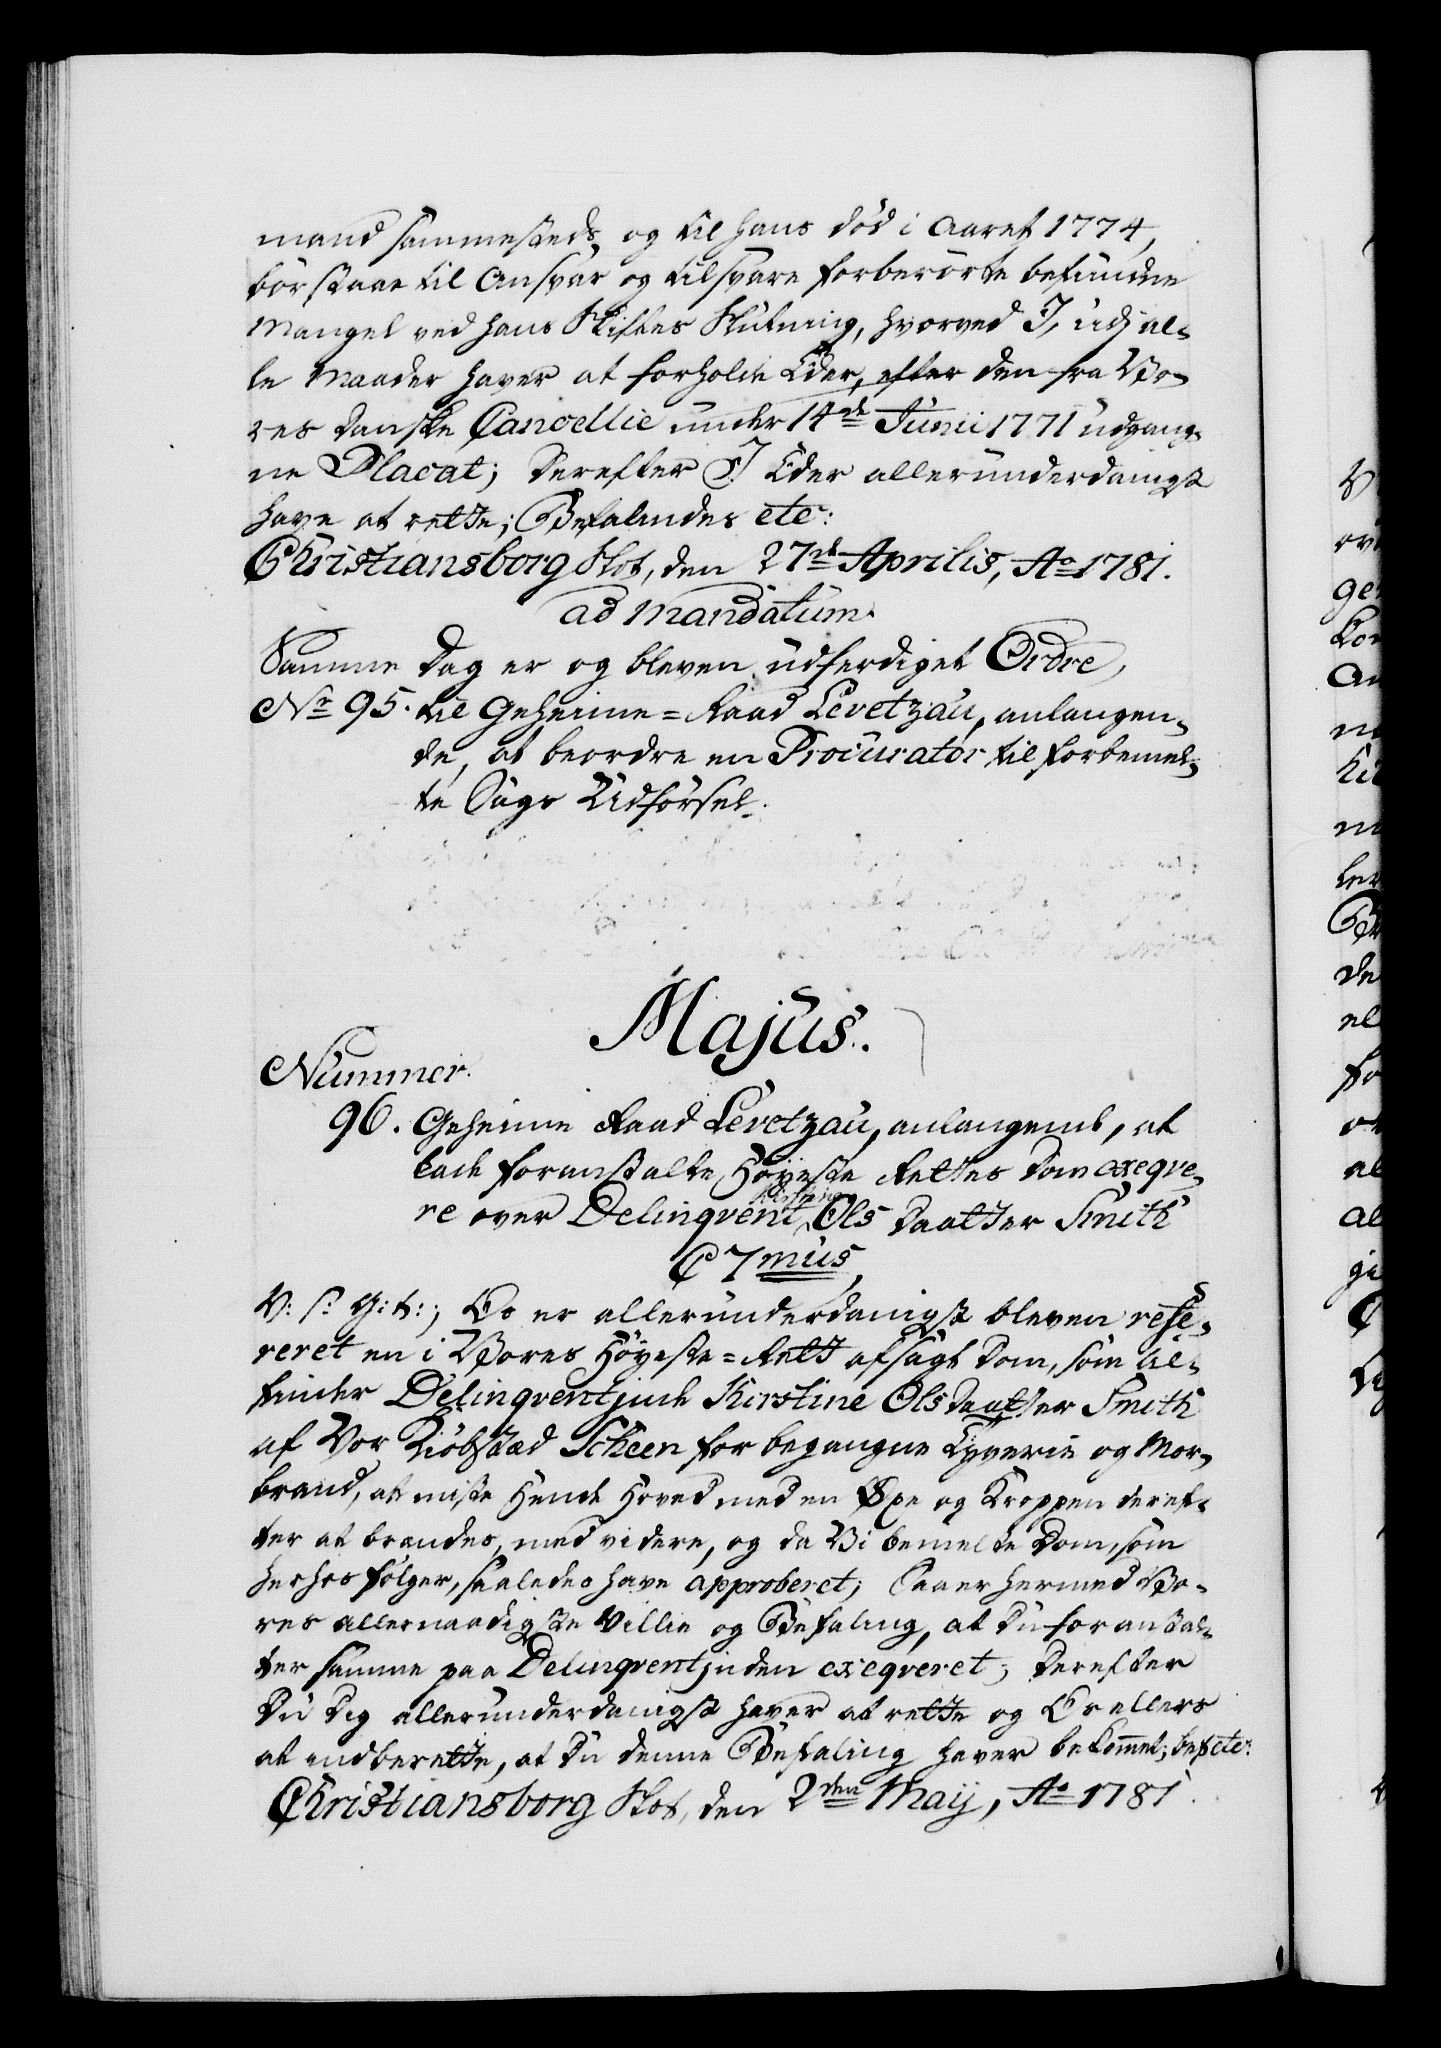 mand sammesteds, og til hans død i Aaret 1774,
bør staae til Ansvar og tilsvare forberørte befundne
Mangel ved hans Skiftes Slutning, hvorved I, udj al-
le Maader haver at forholde Eder, efter den fra Vo-
res Danske Cancellie under 14de Junii 1771 udgang-
ne Placat; derefter I Eder allerunderdanigst
have at rette; Befalendes etc:
Christiansborg Slot, den 27de Aprilis, Ao 1781.
ad mandatum.
Samme Dag er og bleven udferdiget Ordre,
No 95. til Geheime=Raad Levetzau, anlangen-
de, at beordre en Procurator til forbemel-
te Sags Udførsel.
Majus.
Nummer.
96. Geheime Raad Levetzau, anlangende, at
lade foranstalte Høyeste Rettes Dom exeqve-
re over Delinqvent Kirstine Ols Daatter Smith
C 7mus,
V: s: G: t:; Os er allerunderdanigst bleven refe-
reret en i Vores Høyeste=Rett afsagt Dom, som til-
finder Delinqventinde Kirstine Ols Daatter Smith
af Vor Kiøbstæd Scheen for begangne Tyverie og Mor-
brand, at miste Hende Hoved med en Øxe og Kroppen deref-
ter at brændes, med videre, og da Vi bemelte Dom, som
herhos følger, saaledes have approberet; Saa er hermed Vo-
res allernaadigste Villie og Befaling, at Du foranstal-
ter samme paa Delinqventinden exeqveret; derefter
Du Dig allerunderdanigst haver at rette og Os ellers
at indberette, at Du denne Befaling haver bekommet; bef etc:
Christiansborg Slot, den 2den Maij, Ao 1781.